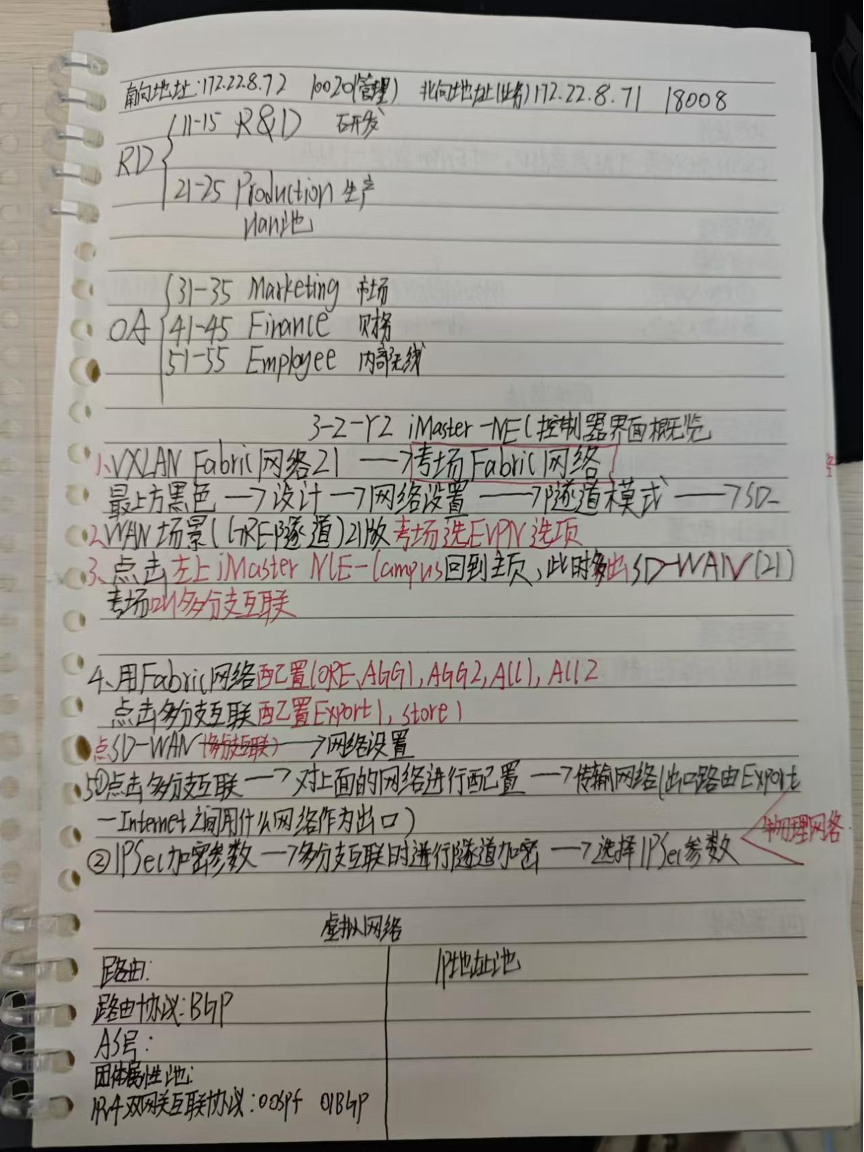 南向地址:172.22.8.72 10020(管理) 北向地址(业务)172.22.8.71 18008
RD
11-15 R&D 研发
21-25 Production 生产
OA
31-35 Marketing 市场
41-45 Finance 财务
51-55 Employee 内部无线
3-2-Y2 iMaster-NEC控制器界面概览
1、VXLAN Fabric网络21 → 考场Fabric网络
最上方黑色 → 设计 → 网络设置 → 隧道模式 → SD-
2、WAN场景(GRE隧道)21做 考场选EVPN选项
3、点击左上iMaster NCE-Campus回到主页、此时多出SD-WAN(21)
考场叫多分支互联
4、用Fabric网络配置CORE、AGG1,AGG2,ACC1,ACC2
点击多分支互联配置Export1,Store1
点SD-WAN(多分支互联) → 网络设置
5①点击多分支互联 → 对上面的网络进行配置 → 传输网络(出口路由Export
—Internet之间用什么网络作为出口)
②IPSec加密参数 → 多分支互联时进行隧道加密 → 选择IPSec参数
物理网络
虚拟网络
路由: IP地址池
路由协议:BGP
AS号:
团体属性池:
双网关互联协议:OSPF BGP